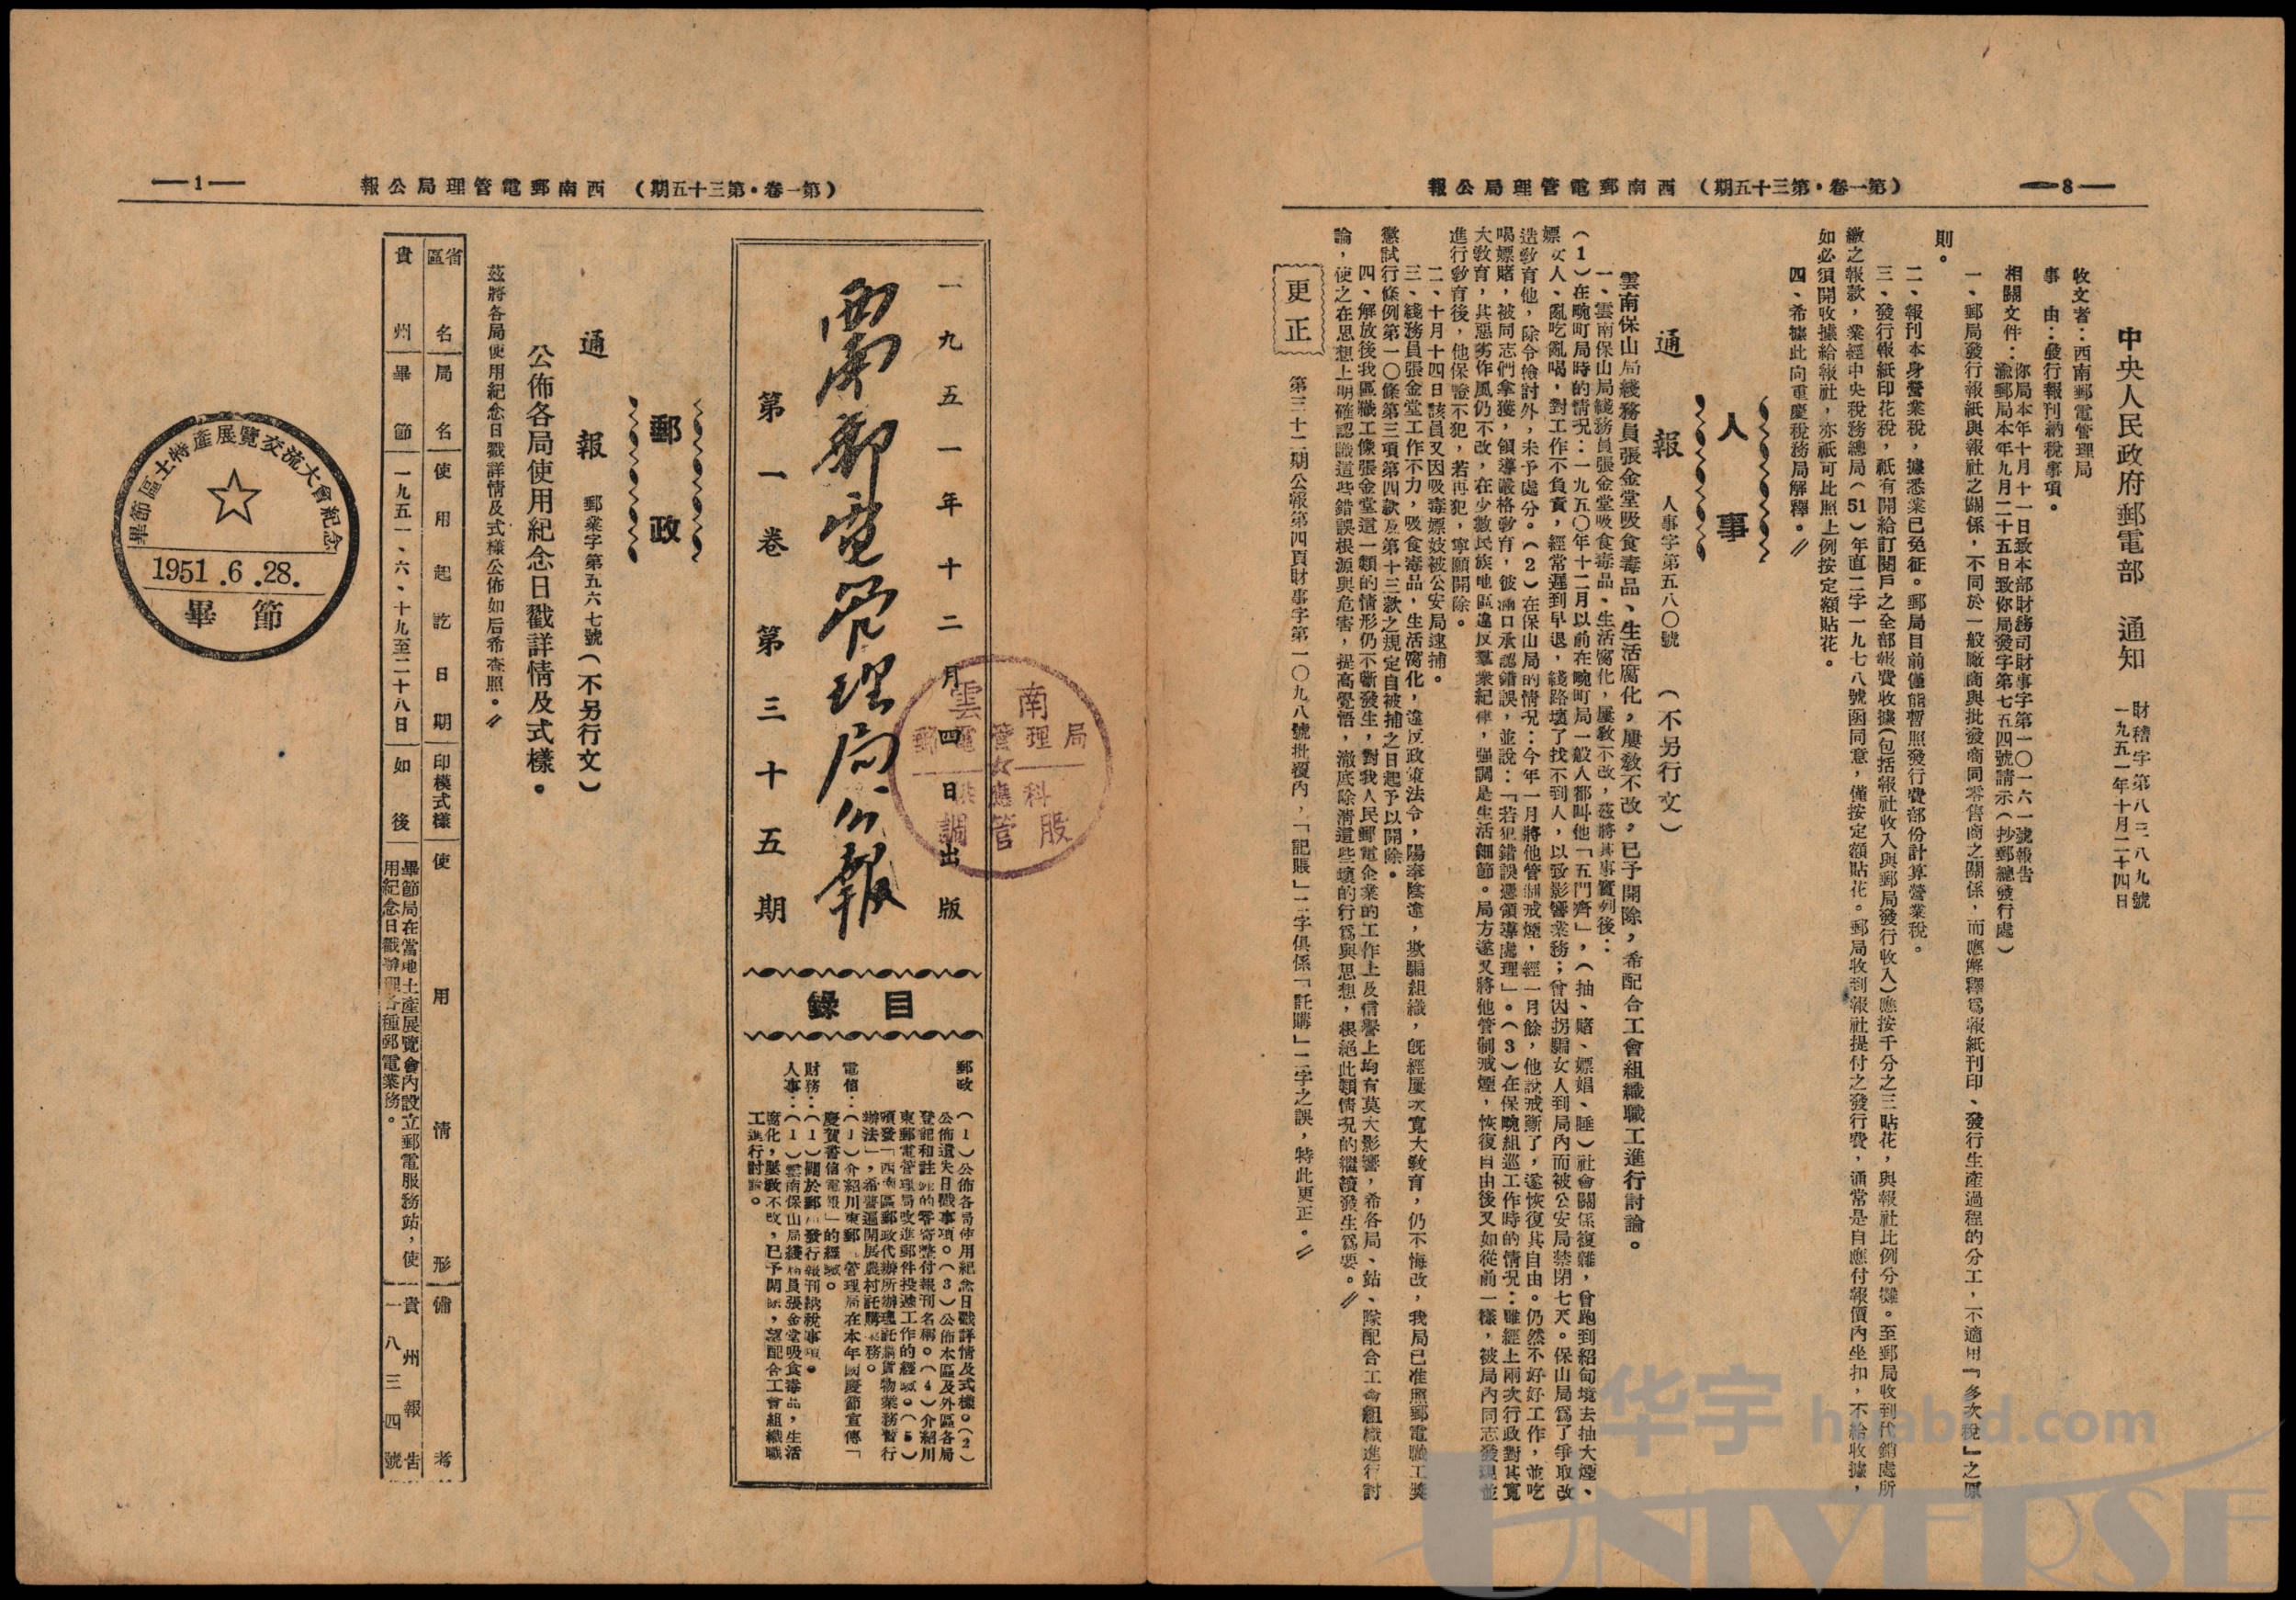 —8—
（第一卷·第三十五期） 西南郵電管理局公報
中央人民政府郵電部 通知
財稽字第八三八九號
一九五一年十月二十四日
收文者：西南郵電管理局
事 由：發行報刊納稅事項。
相關文件：你局本年十月十一日致本部財務司財事字第一〇一六一號報告
渝郵局本年九月二十五日致你局發字第七五四號請示（抄郵總發行處）
一、郵局發行報紙與報社之關係，不同於一般廠商與批發商同零售商之關係，而應解釋爲報紙刊印、發行生產過程的分工，不適用「多次稅」之原
則。
二、報刊本身營業稅，據悉業已免征。郵局目前僅能暫照發行費部份計算營業稅。
三、發行報紙印花稅，祇有開給訂閱戶之全部報費收據（包括報社收入與郵局發行收入）應按千分之三貼花，與報社比例分攤。至郵局收到代銷處所
繳之報款，業經中央稅務總局（51）年直二字一九七八號函同意，僅按定額貼花。郵局收到報社提付之發行費，通常是自應付報價內坐扣，不給收據，
如必須開收據給報社，亦祇可比照上例按定額貼花。
四、希據此向重慶稅務局解釋。
人事
通報 人事字第五八〇號 （不另行文）
雲南保山局綫務員張金堂吸食毒品、生活腐化，屢教不改，已予開除，希配合工會組織職工進行討論。
一、雲南保山局綫務員張金堂吸食毒品、生活腐化，屢教不改，茲將其事實列後：
（1）在畹町局時的情況：一九五〇年十二月以前在畹町局一般人都叫他「五門齊」，（抽、賭、嫖娼、睡）社會關係複雜，曾跑到緬甸境去抽大煙、
嫖女人、亂吃亂喝，對工作不負責，經常遲到早退，綫路壞了找不到人，以致影響業務；曾因拐騙女人到局內而被公安局禁閉七天。保山局爲了爭取改
造教育他，除令檢討外，未予處分。（2）在保山局的情況：今年一月將他管制戒煙，經一月餘，他說戒斷了，遂恢復其自由。仍然不好好工作，並吃
喝嫖賭，被同志們拿獲，領導嚴格教育，彼滿口承認錯誤，並說：「若犯錯誤憑領導處理」。（3）在保畹組巡工作時的情況：雖經上兩次行政對其寬
大教育，其惡劣作風仍不改，在少數民族地區違反羣衆紀律，强調是生活細節。局方遂又將他管制戒煙，恢復自由後又如從前一樣，被局內同志發現並
進行教育後，他保證不犯，若再犯，寧願開除。
二、十月十四日該員又因吸毒嫖妓被公安局逮捕。
三、綫務員張金堂工作不力，吸食毒品，生活腐化，違反政策法令，陽奉陰違，欺騙組織，旣經屢次寬大教育，仍不悔改，我局已准照郵電職工獎
懲試行條例第一〇條第三項第四款及第十三款之規定自被捕之日起予以開除。
四、解放後我區職工像張金堂這一類的情形仍不斷發生，對我人民郵電企業的工作上及信譽上均有莫大影響，希各局、站、隊配合工會組織進行討
論，使之在思想上明確認識這些錯誤根源與危害，提高覺悟，澈底除清這些壞的行爲與思想，根絕此類情況的繼續發生爲要。
更正
第三十二期公報第四頁財事字第一〇九八號批覆內，「記賬」二字俱係「託購」二字之誤，特此更正。
（第一卷·第三十五期） 西南郵電管理局公報
—1—
一九五一年十二月四日出版
西南郵電管理局公報
第一卷 第三十五期
目錄
郵政 （1）公佈各局使用紀念日戳詳情及式樣。（2）
公佈遺失日戳事項。（3）公佈本區及外區各局
登記和註銷的零寄整付報刊名稱。（4）介紹川
東郵電管理局改進郵件投遞工作的經驗。（5）
頒發「西南區郵政代辦所辦理託購貨物業務暫行
辦法」，希普遍開展農村託購業務。
電信：（1）介紹川東郵電管理局在本年國慶節宣傳「
慶賀書信電報」的經驗。
財務：（1）關於郵局發行報刊納稅事項。
人事：（1）雲南保山局綫務員張金堂吸食毒品，生活
腐化，屢教不改，已予開除，望配合工會組織職
工進行討論。
雲南
郵電管理局
供應科
調管股
郵政
通報 郵業字第五六七號（不另行文）
公佈各局使用紀念日戳詳情及式樣。
茲將各局使用紀念日戳詳情及式樣公佈如后希查照。
省區名 局名 使用起訖日期 印模式樣 使用情形 備考
貴州 畢節 一九五一、六、十九至二十八日 如後
畢節局在當地土產展覽會內設立郵電服務站，使
用紀念日戳辦理各種郵電業務。
貴州報告
一八三四號
畢節區土特產展覽交流大會紀念
1951.6.28.
畢節
华宇 huabid.com
UNIVERSE